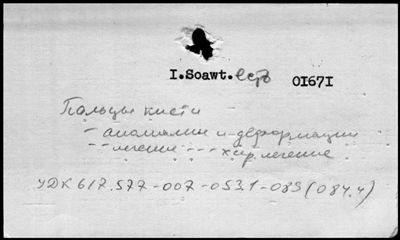 I.Soawt. есть 01671
Пальцы кисти
- аномалии и деформации
- - лечение - - - хир. лечение
УДК 617.577-007-053.1-083(084.4)